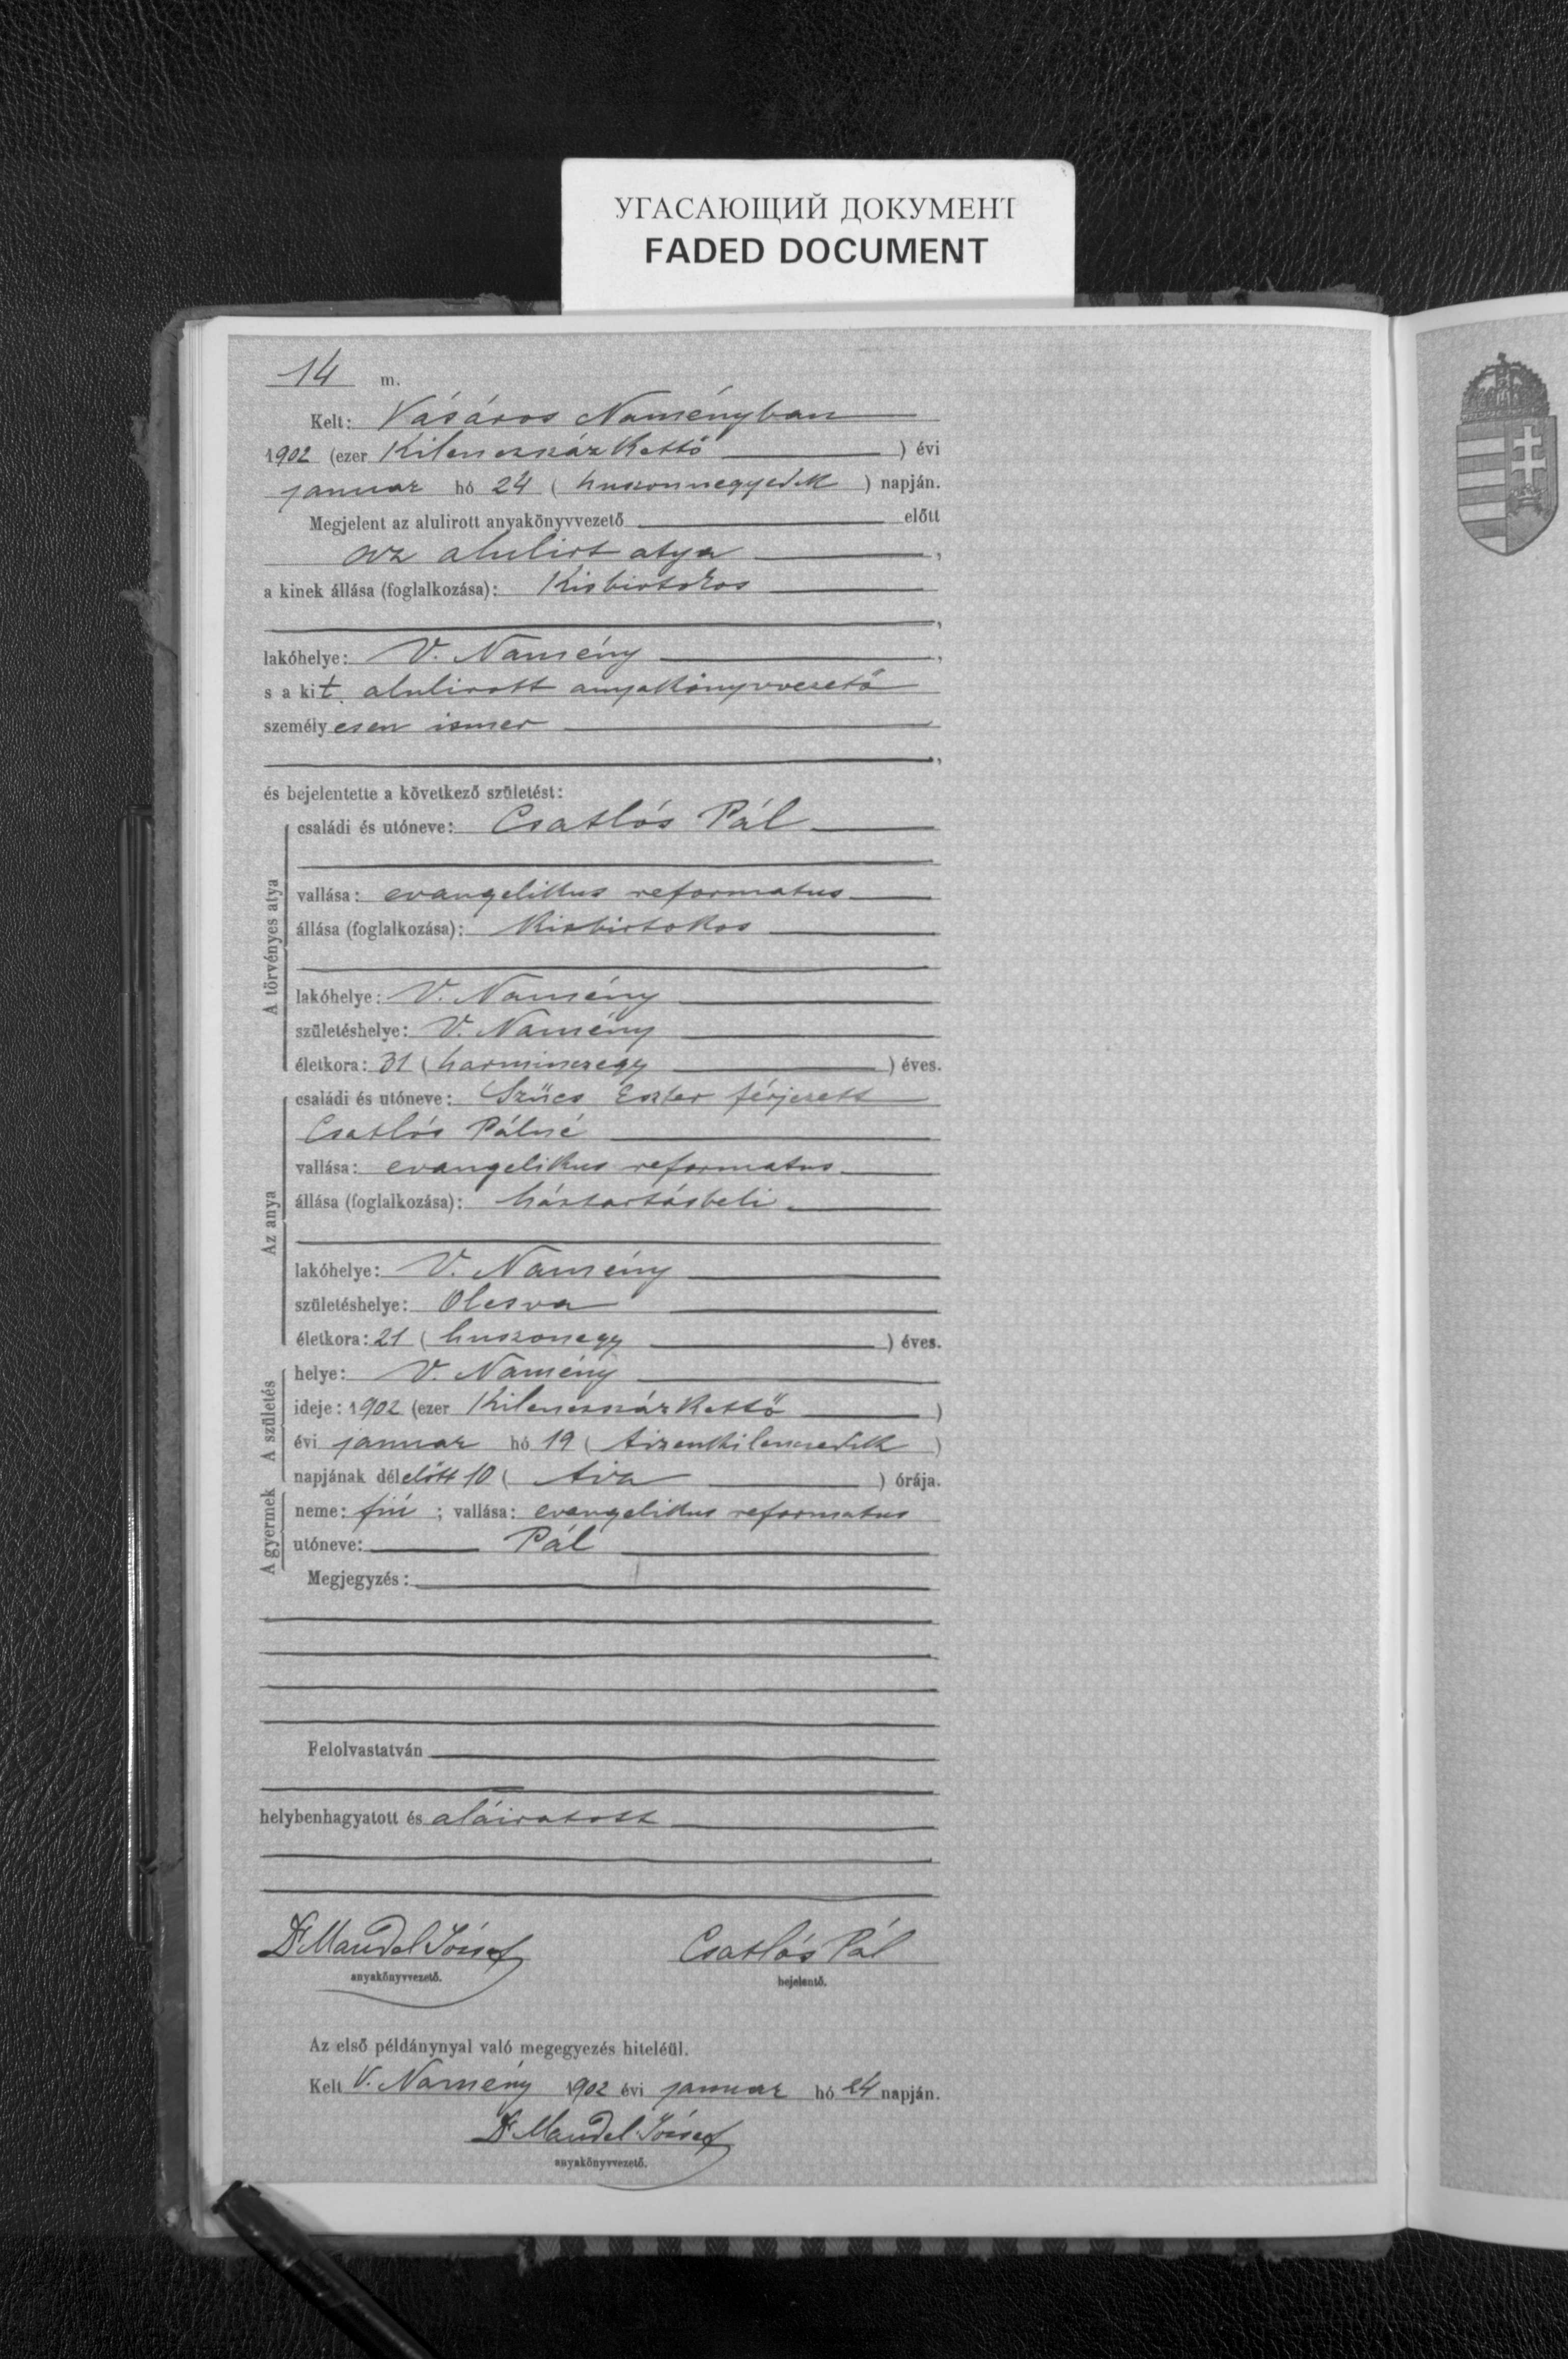 УГАСАЮЩИЙ ДОКУМЕНТ
FADED DOCUMENT
14 m.
Kelt: Vásáros Naményban
1902 (ezer kilenczszáz kettő ) évi
januar hó 24 ( huszonnegyedik ) napján.
Megjelent az alulirott anyakönyvvezető előtt
az alulirt atya ,
a kinek állása (foglalkozása): Kisbirtokos
,
lakóhelye: V. Namény ,
s a kit alulirott anyakönyvvezető
személyesen ismer
,
és bejelentette a következő születést:
A törvényes atya
családi és utóneve: Csatlós Pál
vallása: evangelikus reformatus
állása (foglalkozása): Kisbirtokos
lakóhelye: V. Namény
születéshelye: V. Namény
életkora: 31 ( harminczegy ) éves.
Az anya
családi és utóneve: Szücs Eszter férjezett
Csatlós Pálné
vallása: evangelikus reformatus
állása (foglalkozása): háztartásbeli
lakóhelye: V. Namény
születéshelye: Olcsva
életkora: 21 ( huszonegy ) éves.
A születés
helye: V. Namény
ideje: 1902 (ezer Kilenczszáz Kettő )
évi januar hó 19 ( tizenkilenczedik )
napjának délelőtt 10 ( tiz ) órája.
A gyermek
neme: fiú ; vallása: evangelikus reformatus
utóneve: Pál
Megjegyzés:
Felolvastatván
helybenhagyatott és aláiratott
Dr Mandel József Csatlós Pál
anyakönyvvezető. bejelentő.
Az első példánynyal való megegyezés hiteléül.
Kelt V. Namény 1902 évi januar hó 24 napján.
Dr Mandel József
anyakönyvvezető.